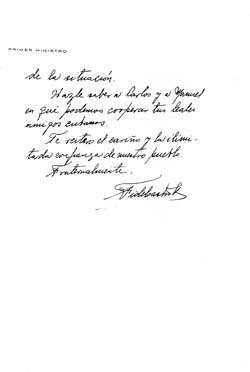 PRIMER MINISTRO
de la situación.
Hazle saber a Carlos y a Manuel
en que podemos cooperar tus leales
amigos cubanos.
Te reitero el cariño y la ilimi-
tada confianza de nuestro pueblo.
Fraternalmente,
Fidel Castro R